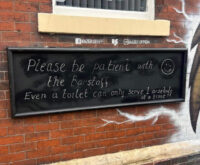 Please be patient with
the barstaff,
Even a toilet can only serve 1 arsehole
at a time